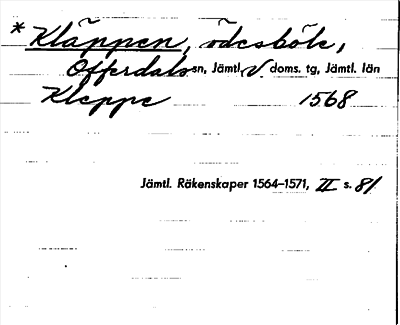 * Kläppen, ödesböle,
Offerdals sn, Jämtl. V. doms. tg, Jämtl. län
Kleppe 1568
Jämtl. Räkenskaper 1564–1571, III s. 81